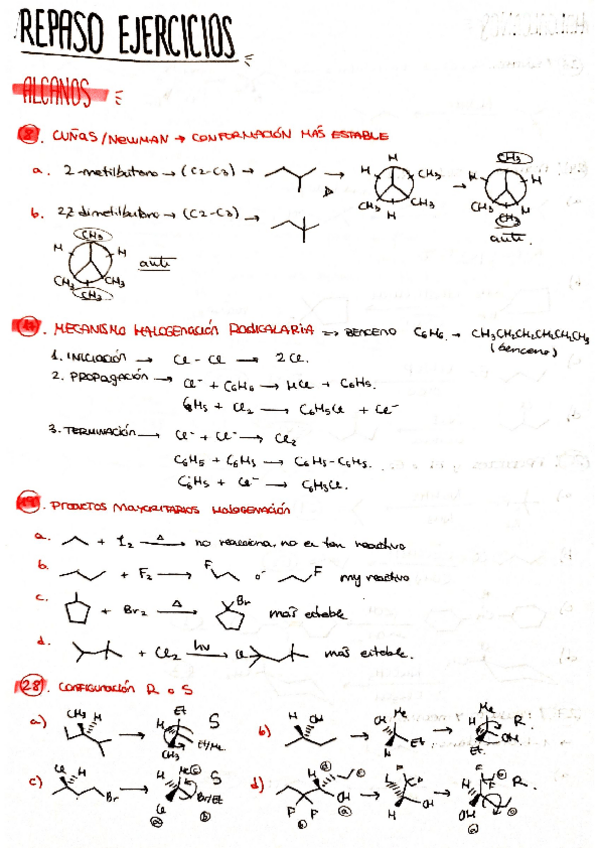 REPASO EJERCICIOS
ALCANOS
8. CUÑAS/NEWMAN → CONFORMACIÓN MÁS ESTABLE
a. 2-metilbutano → (C2-C3) →
H H CH3 CH3 H CH3
CH3 H H CH3 H CH3
anti.
b. 22 dimetilbutano → (C2-C3) →
CH3 H H CH3 CH3 CH3
anti
MECANISMO HALOGENACIÓN RADICALARIA => BENCENO C6H6 → CH3CH2CH2CH2CH2CH3
(benceno)
1. INICIACIÓN → Cl - Cl → 2 Cl.
2. PROPAGACIÓN → Cl- + C6H6 → HCl + C6H5.
C6H5 + Cl2 → C6H5Cl + Cl-
3. TERMINACIÓN → Cl- + Cl- → Cl2
C6H5 + C6H5 → C6H5-C6H5.
C6H5 + Cl- → C6H5Cl.
19. PRODUCTOS MAYORITARIOS HALOGENACIÓN
a. + I2 Δ → no reacciona, no es tan reactivo
b. + F2 → F o F my reactivo
c. + Br2 Δ → Br más estable
d. + Cl2 hν → Cl más estable.
28. CONFIGURACIÓN R o S
a) CH3 H → Et CH3 S
b) H OH → OH Me Et H → Me OH Et. R.
c) Cl H Br → S
d) H OH F F → OH → R.